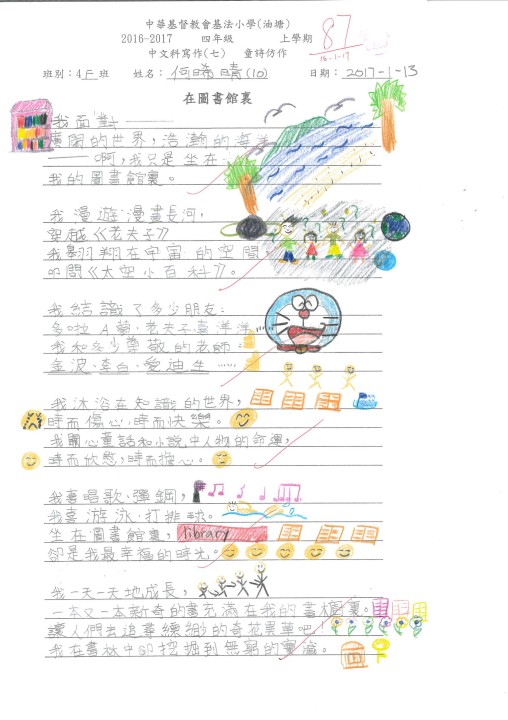 中華基督教會基法小學(油塘)
2016-2017 四年級 上學期
中文科寫作(七) 童詩仿作
87
16-1-17
班別：4F班 姓名：何晞晴(10) 日期：2017-1-13
在圖書館裏
我面對——
廣闊的世界，浩瀚的海洋
——啊，我只是坐在：
我的圖書館裏。
我漫遊漫畫長河，
穿越《老夫子》
我翱翔在宇宙的空間
叩問《太空小百科》。
我結識了多少朋友：
多啦A夢、老夫子喜洋洋……
我和多少尊敬的老師：
金波、李白、愛迪生……
我沐浴在知識的世界，
時而傷心，時而快樂。
我關心童話和小說中人物的命運，
時而欣慰，時而擔心。
我喜唱歌、彈鋼，
我喜游泳、打排球。
坐在圖書館裏， library
卻是我最幸福的時光。
我一天一天地成長，
一本又一本新奇的書充滿在我的書櫃裏。
讓人們去追尋繽紛的奇花異草吧！
我在書林中卻挖掘到無窮的寶藏。